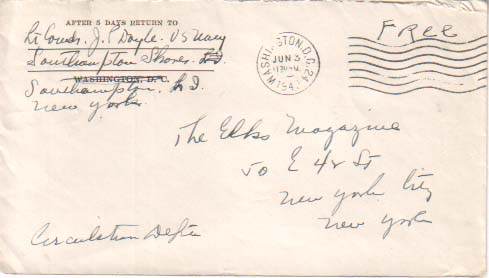 AFTER 5 DAYS RETURN TO
Lt Comdr. J. P. Doyle. US Navy
Southampton Shores
WASHINGTON, D. C.
Southampton, L. I.
New York.
WASHINGTON, D.C. 24
JUN 3
194
Free
The Elks Magazine
50 E 42 St
New York City
New York
Circulation Dept